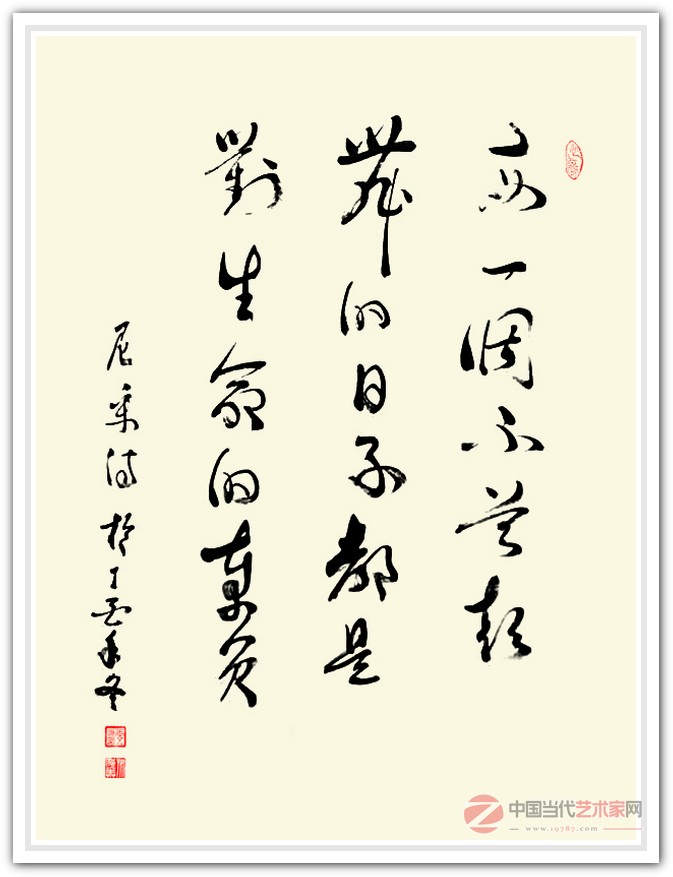 每一個不曾起
舞的日子都是
對生命的辜負
尼采詩於丁酉年冬
中国当代艺术家网
www.19787.com